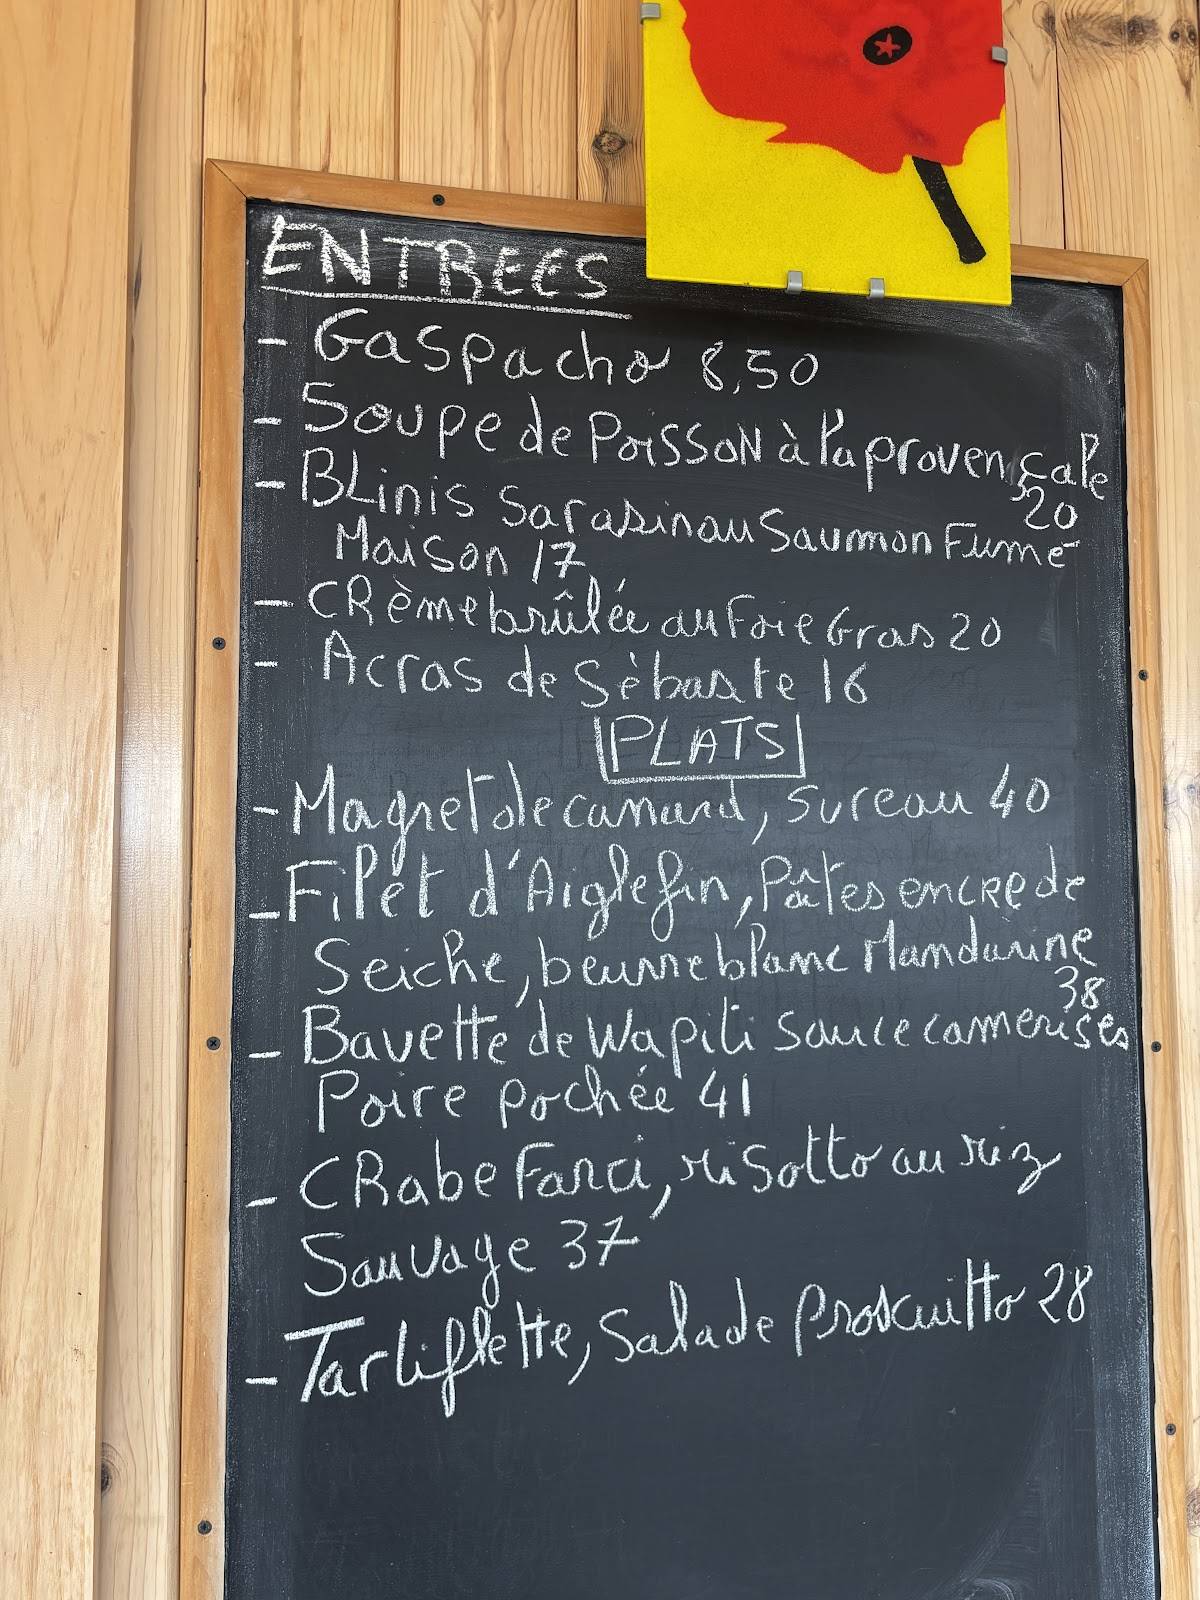 ENTREES
- Gaspacho 8,50
- Soupe de Poisson à la provençale
20
- Blinis Sarasin au Saumon Fumé
Maison 17
- Crème brûlée au Foie Gras 20
- Acras de Sèbaste 16
PLATS
- Magret de canard, sureau 40
- Filet d'Aiglefin, Pâtes encre de
Seiche, beurre blanc Mandarine
38
- Bavette de Wapiti Sauce camerises
Poire pochée 41
- Crabe Farci, risotto au riz
Sauvage 37
- Tartiflette, Salade Proskuitto 28